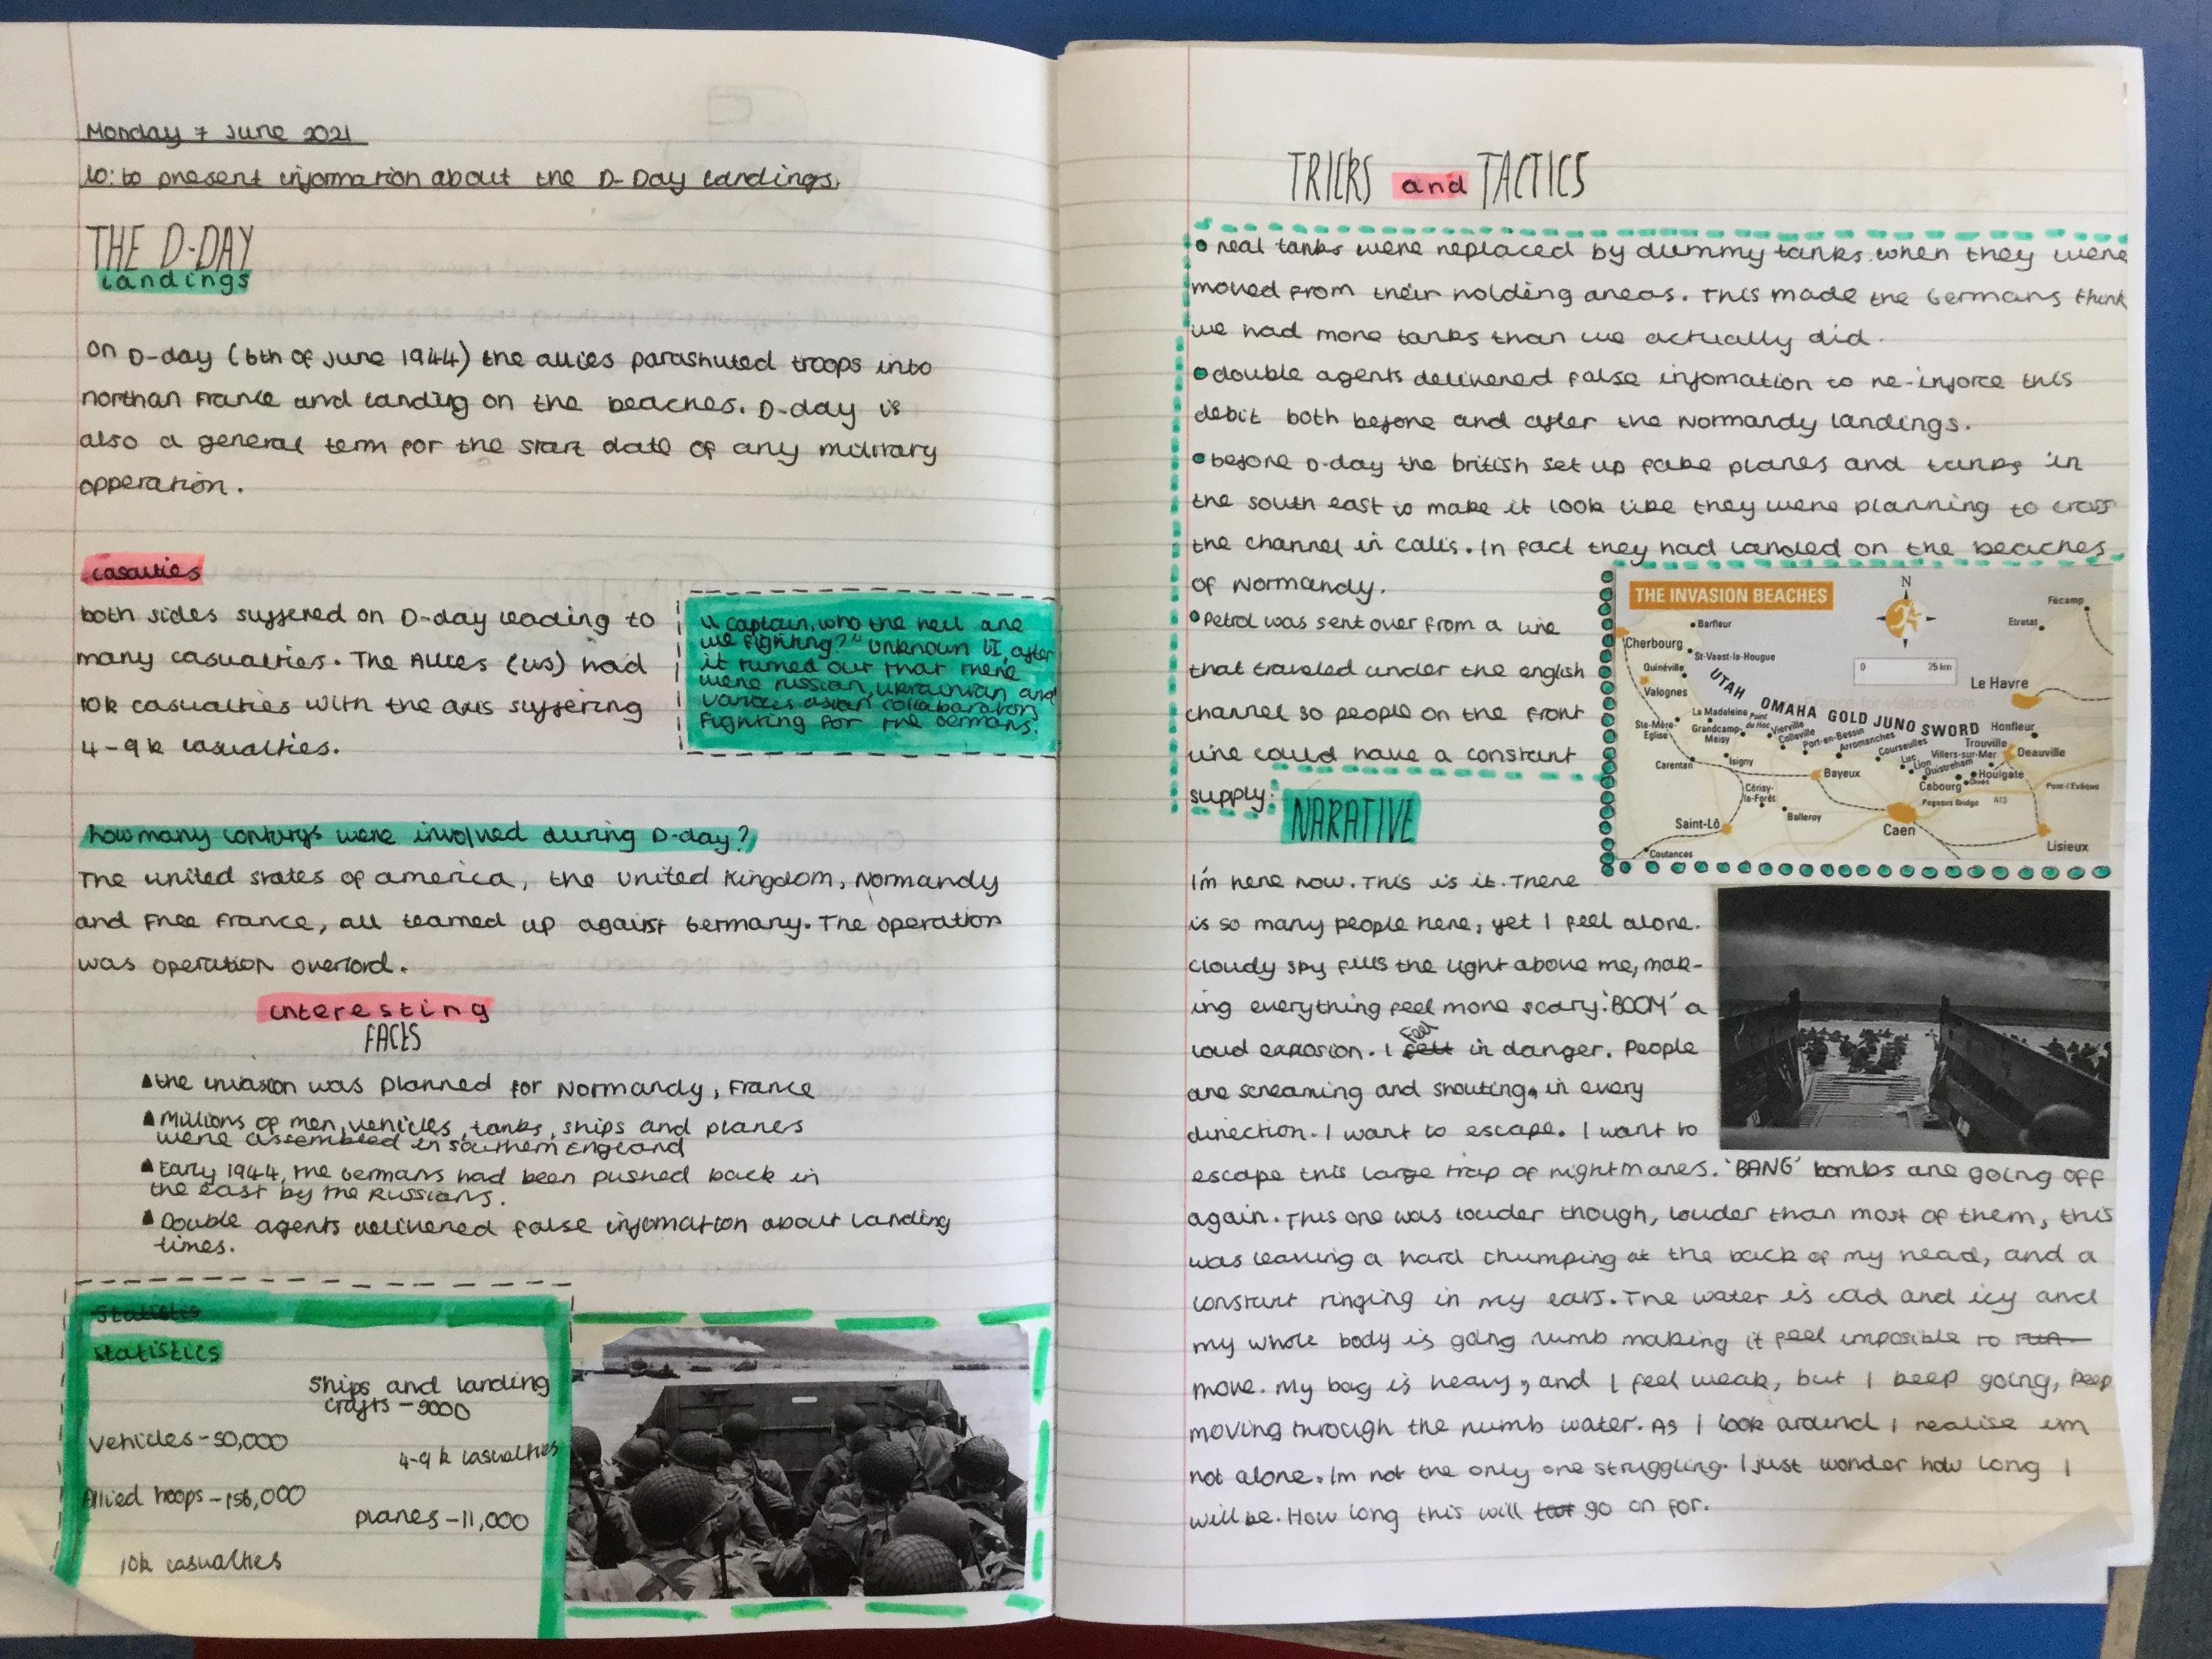 Monday 7 June 2021
LO: to present information about the D-Day landings.
THE D-DAY
landings
On D-day (6th of June 1944) the allies parashuted troops into
northan France and landing on the beaches. D-day is
also a general term for the start date of any military
opperation.
casualties
both sides suffered on D-day leading to
many casualties. The Allies (us) had
10k casualties with the axis suffering
4-9k casualties.
"captain, who the hell are
we fighting?" unknown after
it turned out that there
were russian, ukrainian and
various asian collaborators
fighting for the Germans.
how many contrys were involved during D-day?
The united states of america, the United Kingdom, Normandy
and Free France, all teamed up against Germany. The operation
was operation overlord.
interesting
FACTS
the invasion was planned for Normandy, France
Millions of men, vehicles, tanks, ships and planes
were assembled in southern England
Early 1944, the Germans had been pushed back in
the east by the Russians.
Double agents delivered false infomation about landing
times.
Statistis
statistics
Ships and landing
crafts - 5000
vehicles - 50,000
4-9k casualties
Allied troops - 156,000
planes - 11,000
10k casualties
TRICKS and TACTICS
real tanks were replaced by dummy tanks when they were
moved from their holding areas. This made the Germans think
we had more tanks than we actually did.
double agents delivered false infomation to re-inforce this
debit both before and after the Normandy landings.
before D-day the british set up fake planes and tanks in
the south east to make it look like they were planning to cross
the channel in Calis. In fact they had landed on the beaches
of Normandy.
Petrol was sent over from a line
that traveled under the english
channel so people on the front
line could have a constant
supply.
THE INVASION BEACHES
N
Fécamp
Barfleur
Etretat
Cherbourg
St-Vaast-la-Hougue
0 25 km
Quinéville
Le Havre
Valognes
UTAH OMAHA GOLD JUNO SWORD
La Madeleine
Pointe du Hoc
Honfleur
Ste-Mère-Eglise
Grandcamp-Maisy
Vierville
Colleville
Port-en-Bessin
Arromanches
Courseulles
Luc
Lion
Ouistreham
Villers-sur-Mer
Trouville
Deauville
Carentan
Isigny
Bayeux
Houlgate
Cabourg
Dives
Pont-l'Evêque
Cérisy-la-Forêt
Pegasus Bridge
A13
Balleroy
Saint-Lô
Caen
Lisieux
Coutances
NARATIVE
I'm here now. This is it. There
is so many people here, yet I feel alone.
cloudy sky fills the light above me, mak-
ing everything feel more scary. 'BOOM' a
loud explosion. I felt feel in danger. People
are screaming and shouting, in every
direction. I want to escape. I want to
escape this large trap of nightmares. 'BANG' bombs are going off
again. This one was louder though, louder than most of them, this
was leaving a hard thumping at the back of my head, and a
constant ringing in my ears. The water is cold and icy and
my whole body is going numb making it feel imposible to run
move. My bag is heavy, and I feel weak, but I keep going, keep
moving through the numb water. As I look around I realise im
not alone. Im not the only one struggling. I just wonder how long I
will be. How long this will go on for.